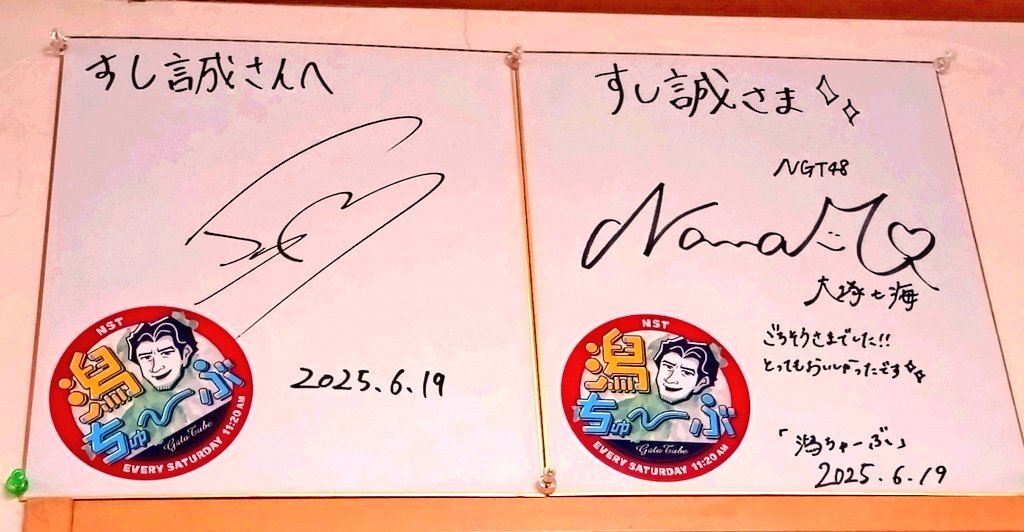 すし誠さんへ
NST
潟
ちゅ〜ぶ
Gata Tube
EVERY SATURDAY 11:20 AM
2025.6.19
すし誠さま
NGT48
Nanami
大塚七海
ごちそうさまでした!!
とってもおいしかったです
NST
潟
ちゅ〜ぶ
Gata Tube
EVERY SATURDAY 11:20 AM
「潟ちゅーぶ」
2025.6.19